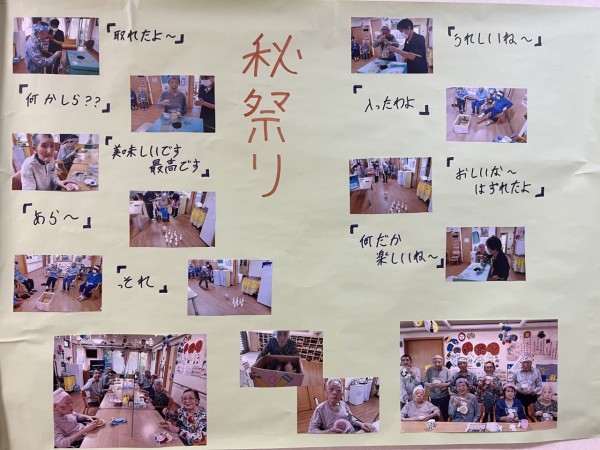 秋祭り
『取れたよ～』
『何かしら??』
『美味しいです
最高です』
『あら～』
『っそれ』
『うれしいね～』
『入ったわよ』
『おしいな～
はずれたよ』
『何だか
楽しいね～』